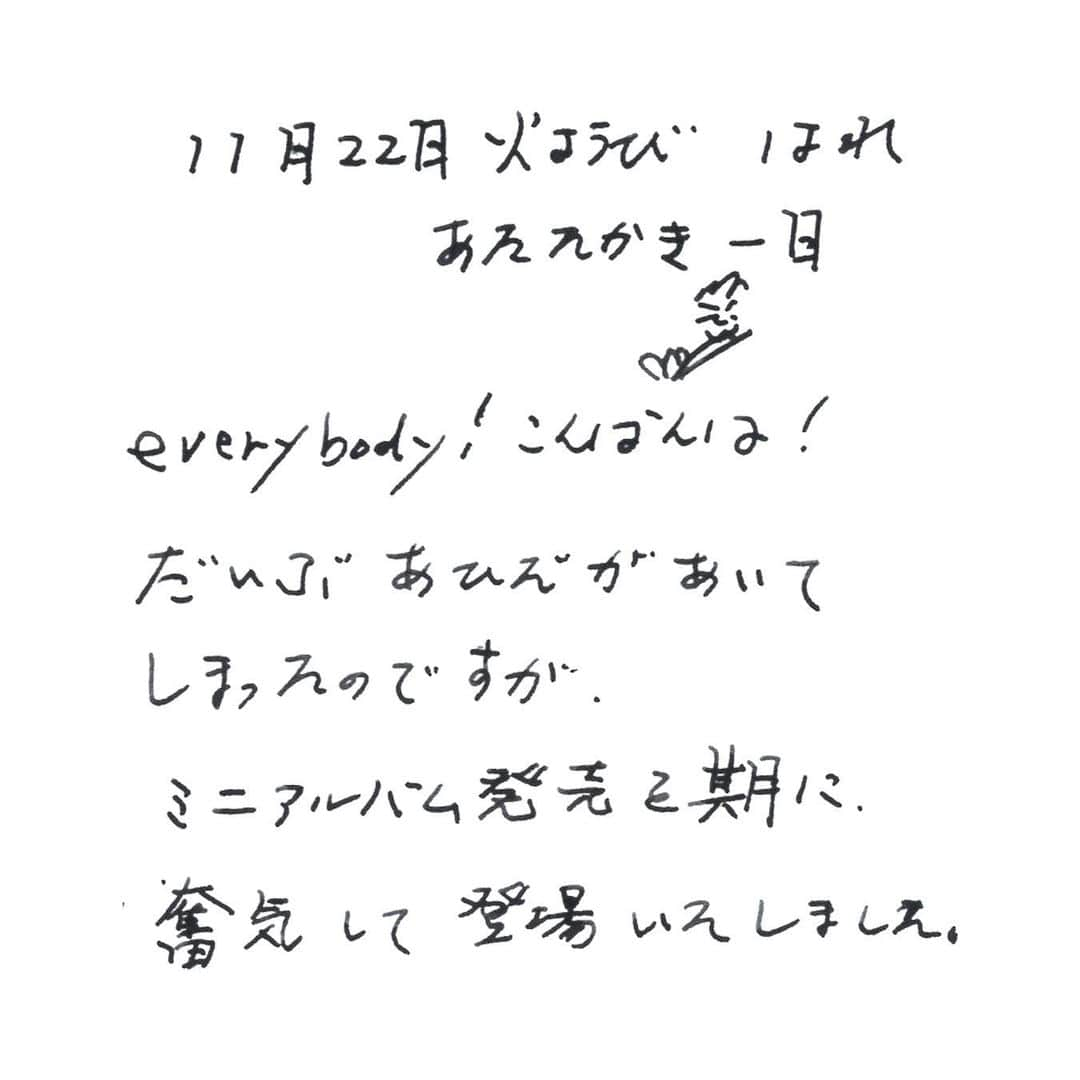 11月22日 火ようび はれ
あたたかき一日
everybody! こんばんは!
だいぶ あひだが あいて
しまったのですが、
ミニアルバム発売を期に、
奮気して 登場いたしました。